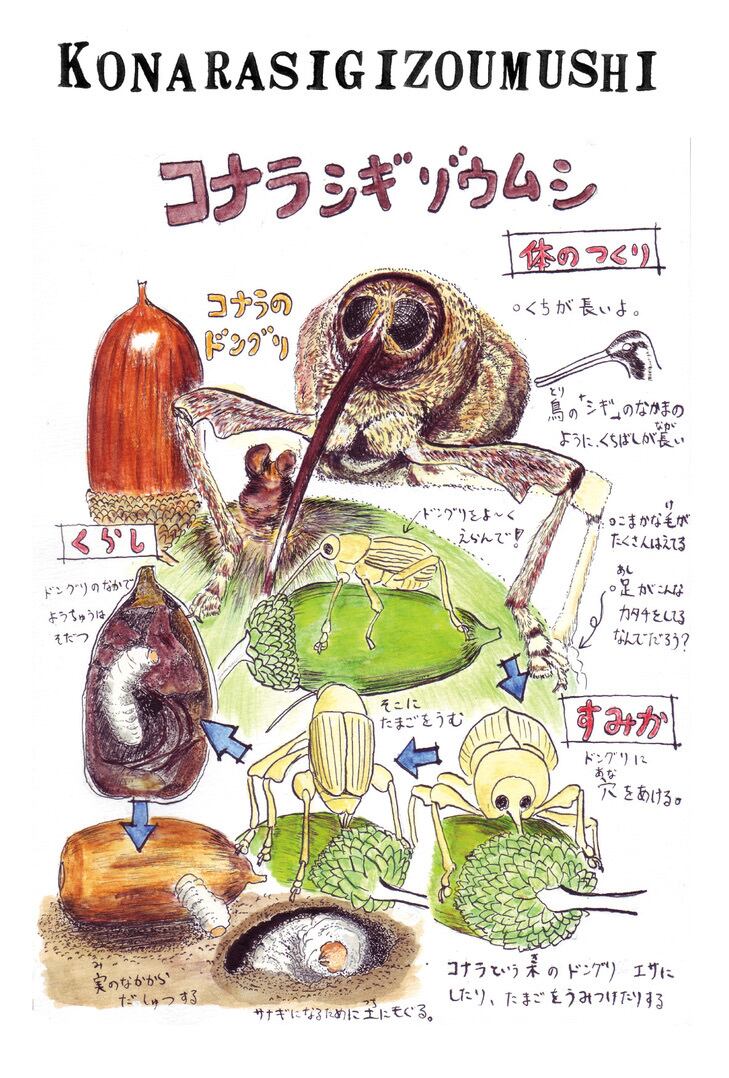 KONARASIGIZOUMUSHI
コナラシギゾウムシ
体のつくり
コナラの
ドングリ
○くちが長いよ。
とり
鳥の「シギ」のなかまの
なが
ように、くちばしが長い
くらし
ドングリをよ〜く
えらんで!
け
○こまかな毛が
たくさんはえてる
ドングリのなかで
ようちゅうは
そだつ
あし
○足がこんな
カタチをしてる
なんでだろう?
そこに
たまごをうむ
すみか
ドングリに
あな
穴をあける。
み
実のなかから
だしゅつする
つち
サナギになるために土にもぐる。
き
コナラという木のドングリ エサに
したり、たまごをうみつけたりする